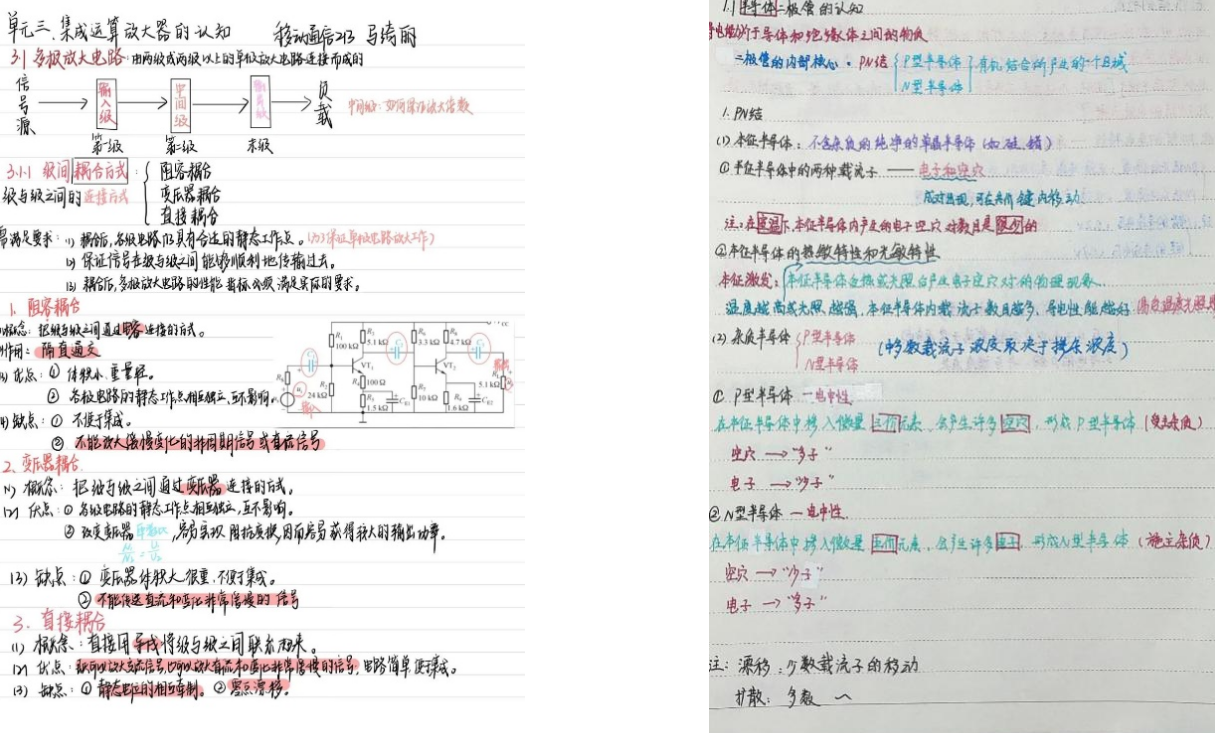 单元三、集成运算放大器的认知 移动通信213 马绮丽
3.1 多级放大电路：由两级或两级以上的单级放大电路连接而成的
信号源 输入级 中间级 输出级 负载
第一级 第二级 末级
中间级：如何得到放大倍数
3.1.1 级间耦合方式：
阻容耦合
变压器耦合
直接耦合
级与级之间的连接方式
需满足要求：(1) 耦合后，各级电路仍具有合适的静态工作点。(为了保证单级电路放大工作)
(2) 保证信号在级与级之间能够顺利地传输过去。
(3) 耦合后，多级放大电路的性能指标必须满足实际的要求。
1. 阻容耦合
概念：把级与级之间通过阻容连接的方式。
作用：隔直通交
优点：① 体积小、重量轻。
② 各级电路的静态工作点相互独立，互不影响。
缺点：① 不便于集成。
② 不能放大缓慢变化的非周期信号或直流信号
R₁ 100 kΩ 5.1 kΩ 3.3 kΩ 4.7 kΩ
VT₁ VT₂
24 kΩ 100 Ω 1.5 kΩ 10 kΩ 1.6 kΩ 5.1 kΩ
2. 变压器耦合
(1) 概念：把级与级之间通过变压器连接的方式。
(2) 优点：① 各级电路的静态工作点相互独立，互不影响。
② 改变变压器匝数比，容易实现阻抗变换，因而容易获得较大的输出功率。
(3) 缺点：① 变压器体积大很重，不便于集成。
② 不能传送直流和变化非常缓慢的信号
3. 直接耦合
(1) 概念：直接用导线将级与级之间联系起来。
(2) 优点：既可以放大交流信号，也可以放大直流和变化非常缓慢的信号，电路简单便于集成。
(3) 缺点：① 静态电位的相互牵制。② 零点漂移。
1.1 半导体二极管的认知
导电能力介于导体和绝缘体之间的物质
二极管的内部核心：PN结
P型半导体
N型半导体
有机结合所产生的一个区域
1. PN结
(1) 本征半导体：不含杂质的纯净的单晶半导体（如硅、锗）
① 本征半导体中的两种载流子 —— 电子和空穴
成对出现，可在共价键内移动
注：在室温下，本征半导体内产生的电子空穴对数目是限列的
② 本征半导体的热敏特性和光敏特性
本征激发：本征半导体在热或光照下产生电子空穴对的物理现象
温度越高或光照越强，本征半导体内载流子数目越多，导电性能越好
(2) 杂质半导体
P型半导体
N型半导体
（多数载流子浓度取决于掺杂浓度）
① P型半导体 —电中性
在本征半导体中掺入微量三价元素，会产生许多空穴，形成P型半导体（受主杂质）
空穴 → “多子”
电子 → “少子”
② N型半导体 —电中性
在本征半导体中掺入微量五价元素，会产生许多电子，形成N型半导体（施主杂质）
空穴 → “少子”
电子 → “多子”
注：漂移：少数载流子的移动
扩散：多数 ～